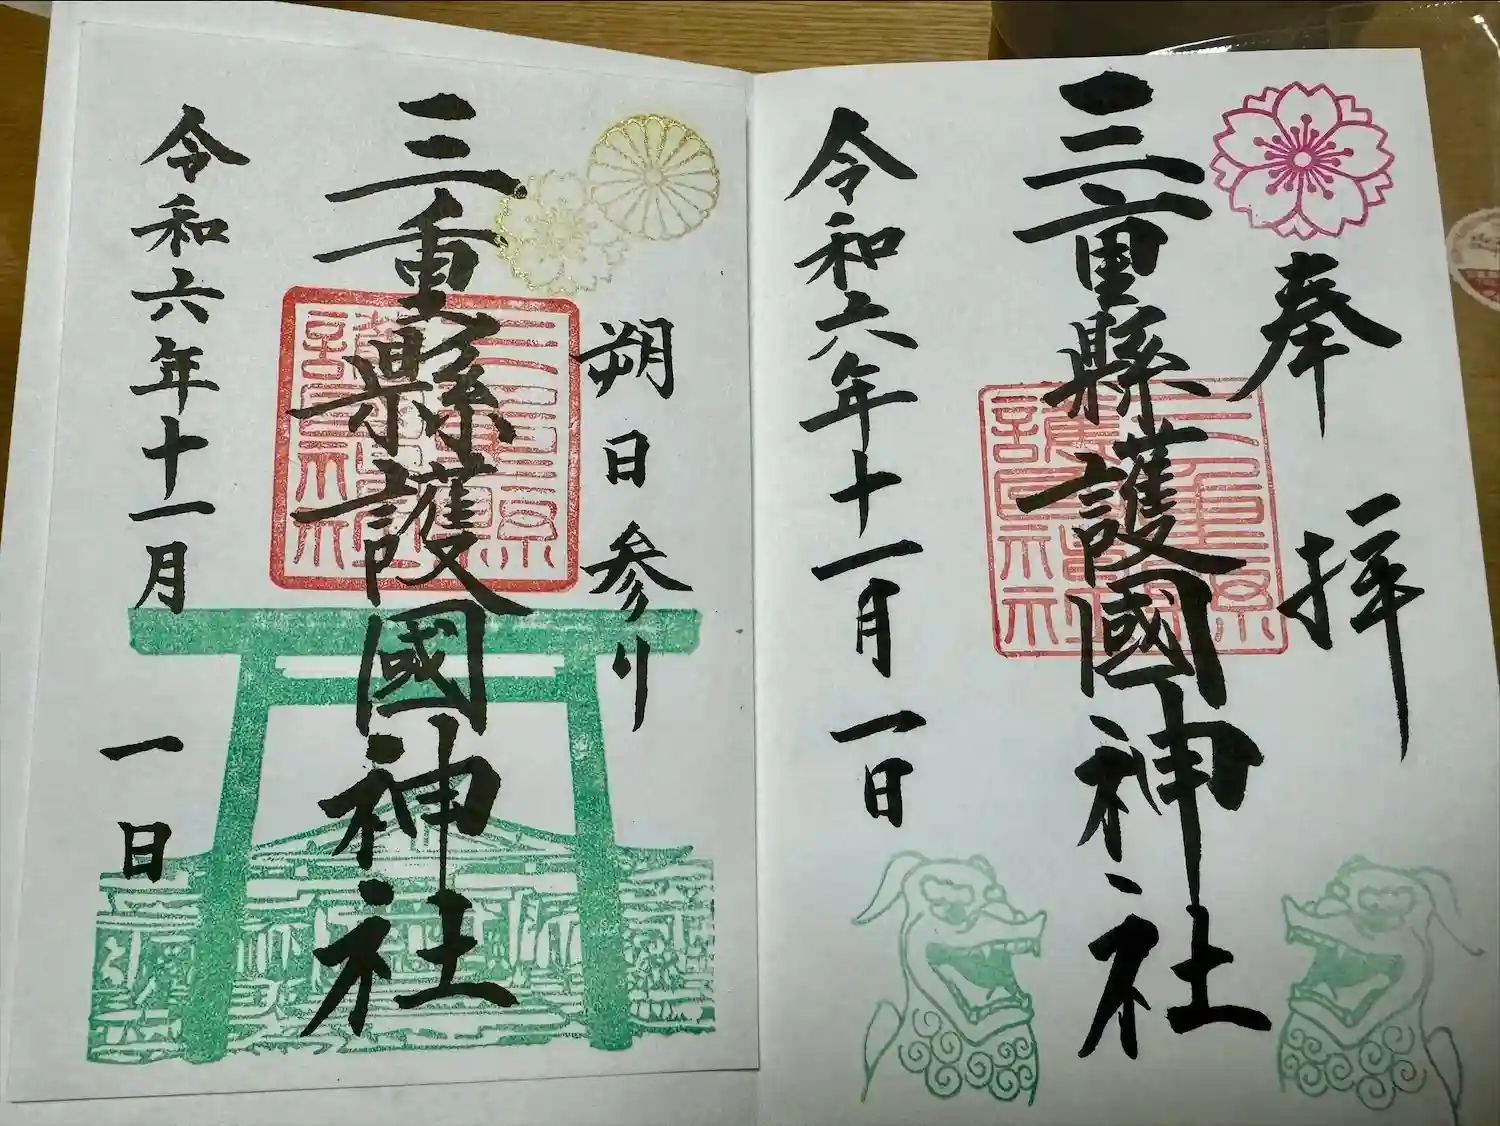 奉拝
三重縣護國神社
令和六年十一月一日
三重縣護國神社
朔日参り
三重縣護國神社
令和六年十一月一日
三重縣護國神社